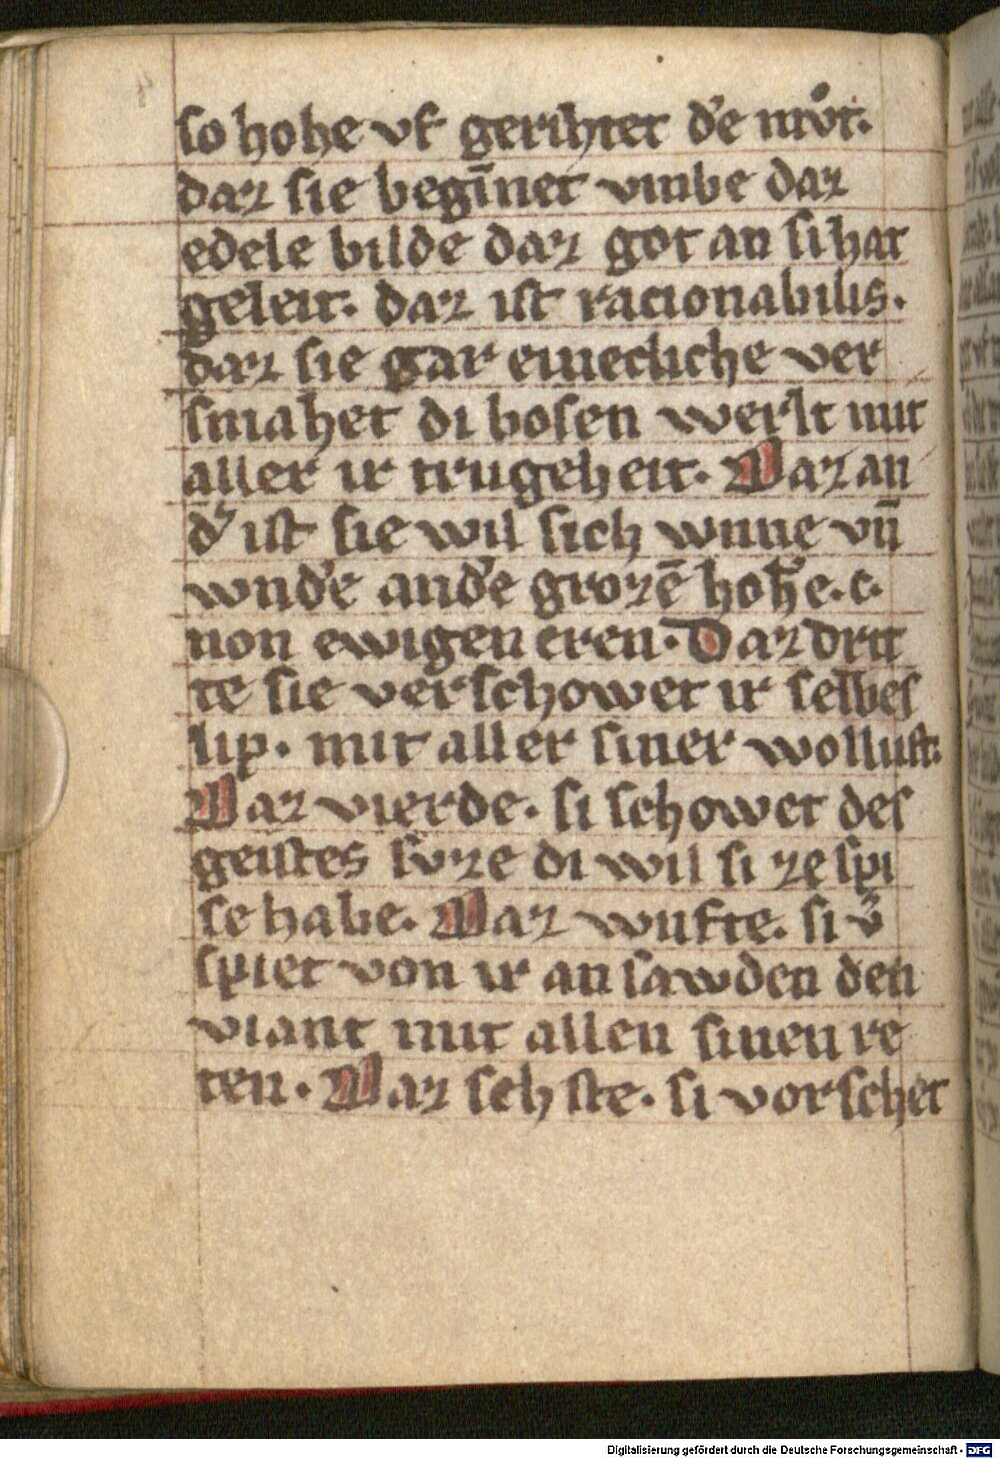 so hohe vf gerihtet d'e mvͦt.
daz sie begīnet vmbe daz
edele bilde daz got an si hat
geleit. daz ist racionabilis.
daz sie gar ewecliche ver
smahet di bosen werlt mit
aller ir trugeheit. Daz an
d' ist sie wil sich wnne vn̄
wnd'e and'e grozē hohe. c.
non ewigen eren. Daz drit
te sie verschowet ir selbes
lip. mit aller siner wollust.
Daz vierde. si schowet des
geistes svͦze di wil si ze spi
se habe. Daz wnfte. si v̾
spiet von ir an sawden den
viant mit allen sinen re
ten. Daz sehste. si vorschet
Digitalisierung gefördert durch die Deutsche Forschungsgemeinschaft - DFG